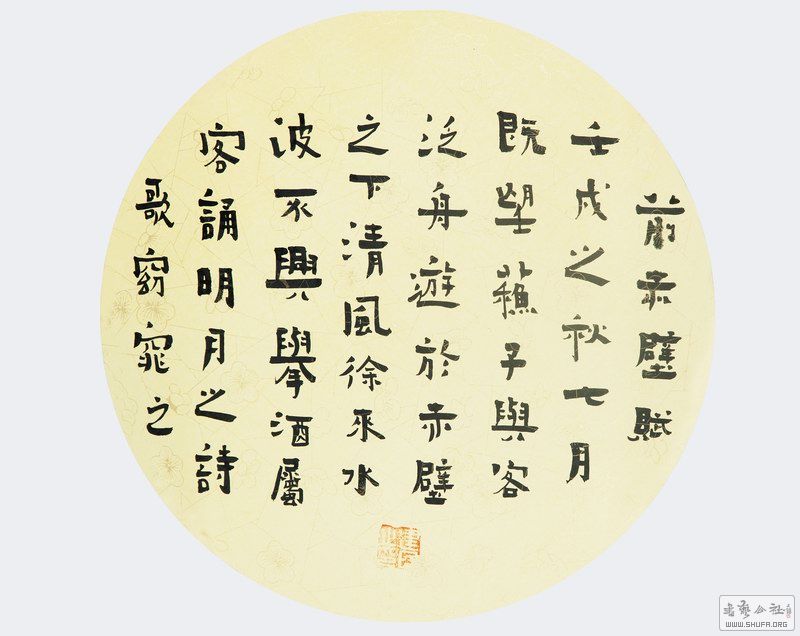 前赤壁賦
壬戌之秋七月
既望蘓子與客
泛舟遊於赤壁
之下清風徐來水
波不興舉酒屬
客誦明月之詩
歌窈窕之
書藝公社
WWW.SHUFA.ORG